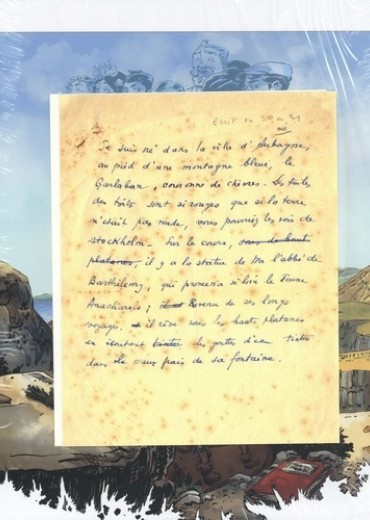 Ecrit en 30 ou 31
né
Je suis né dans la ville d'Aubagne,
au pied d'une montagne bleue, le
Garlaban, couronné de chèvres. Les tuiles
des toits sont si rouges que si la terre
n'était pas ronde, vous pourriez les voir de
Stockholm. Sur le cours, sous de hauts
platanes, il y a la statue de M. l'abbé de
Barthélemy, qui promena si loin le Jeune
Anacharsis; Revenu de ses longs
voyages, il rêve sous les hauts platanes
en écoutant les gouttes d'eau tinter
dans le creux frais de sa fontaine.